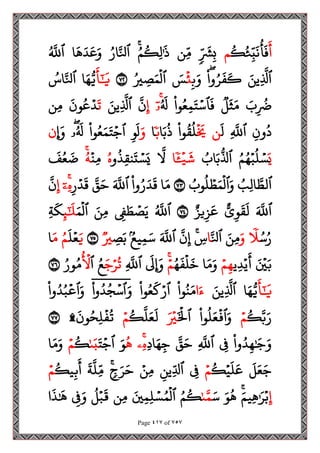 أَفَأُنَبِّئُكُم بِشَرٍّ مِّن ذَٰلِكُمُ ۗ ٱلنَّارُ وَعَدَهَا ٱللَّهُ
ٱلَّذِينَ كَفَرُوا۟ ۖ وَبِئْسَ ٱلْمَصِيرُ ٧٢ يَـٰٓأَيُّهَا ٱلنَّاسُ
ضُرِبَ مَثَلٌ فَٱسْتَمِعُوا۟ لَهُۥٓ ۚ إِنَّ ٱلَّذِينَ تَدْعُونَ مِن
دُونِ ٱللَّهِ لَن يَخْلُقُوا۟ ذُبَابًا وَلَوِ ٱجْتَمَعُوا۟ لَهُۥ ۖ وَإِن
يَسْلُبْهُمُ ٱلذُّبَابُ شَيْـًٔا لَّا يَسْتَنقِذُوهُ مِنْهُ ۚ ضَعُفَ
ٱلطَّالِبُ وَٱلْمَطْلُوبُ ٧٣ مَا قَدَرُوا۟ ٱللَّهَ حَقَّ قَدْرِهِۦٓ ۗ إِنَّ
ٱللَّهَ لَقَوِىٌّ عَزِيزٌ ٧٤ ٱللَّهُ يَصْطَفِى مِنَ ٱلْمَلَـٰٓئِكَةِ
رُسُلًا وَمِنَ ٱلنَّاسِ ۚ إِنَّ ٱللَّهَ سَمِيعٌۢ بَصِيرٌ ٧٥ يَعْلَمُ مَا
بَيْنَ أَيْدِيهِمْ وَمَا خَلْفَهُمْ ۗ وَإِلَى ٱللَّهِ تُرْجَعُ ٱلْأُمُورُ ٧٦
يَـٰٓأَيُّهَا ٱلَّذِينَ ءَامَنُوا۟ ٱرْكَعُوا۟ وَٱسْجُدُوا۟ وَٱعْبُدُوا۟
رَبَّكُمْ وَٱفْعَلُوا۟ ٱلْخَيْرَ لَعَلَّكُمْ تُفْلِحُونَ ۩ ٧٧
وَجَـٰهِدُوا۟ فِى ٱللَّهِ حَقَّ جِهَادِهِۦ ۚ هُوَ ٱجْتَبَىٰكُمْ وَمَا
جَعَلَ عَلَيْكُمْ فِى ٱلدِّينِ مِنْ حَرَجٍ ۚ مِّلَّةَ أَبِيكُمْ
إِبْرَٰهِيمَ ۚ هُوَ سَمَّىٰكُمُ ٱلْمُسْلِمِينَ مِن قَبْلُ وَفِى هَـٰذَا
Page ٤٢٧ of ٧٥٧